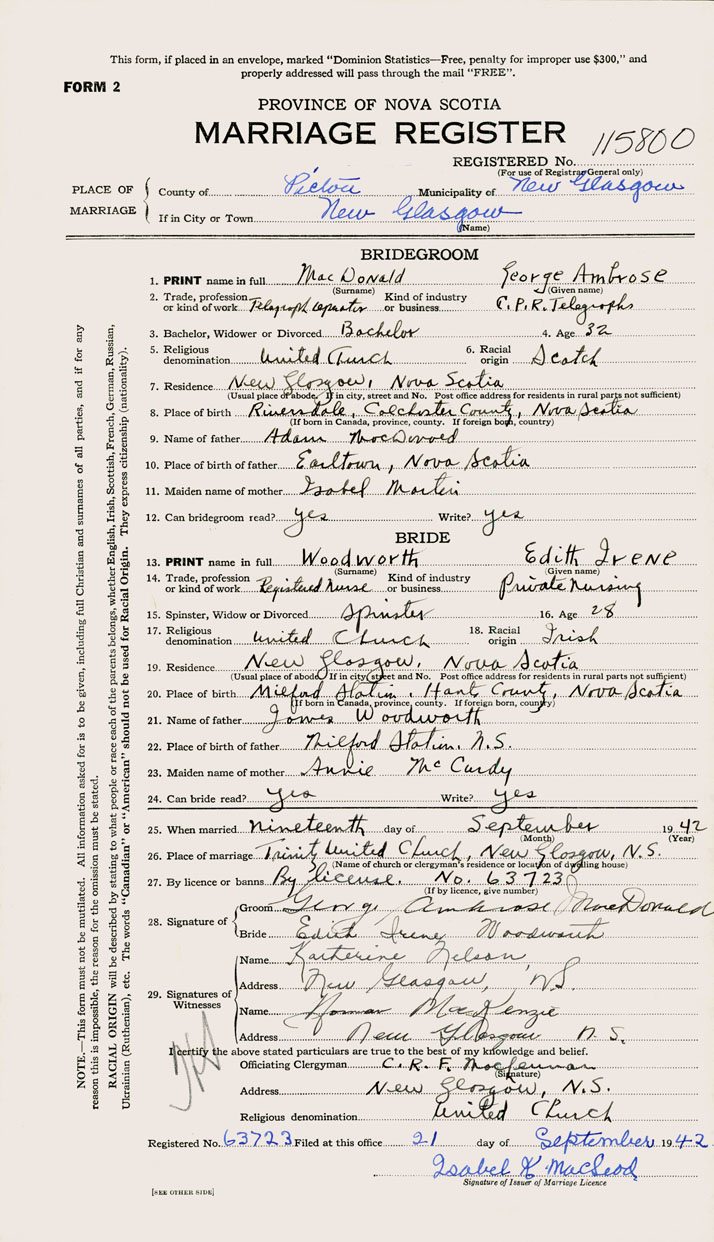 This form, if placed in an envelope, marked "Dominion Statistics—Free, penalty for improper use $300," and
properly addressed will pass through the mail "FREE".
FORM 2
PROVINCE OF NOVA SCOTIA
MARRIAGE REGISTER
115800
REGISTERED No.
(For use of Registrar General only)
PLACE OF MARRIAGE
County of Pictou Municipality of New Glasgow
If in City or Town New Glasgow
(Name)
BRIDEGROOM
1. PRINT name in full MacDonald George Ambrose
(Surname) (Given name)
2. Trade, profession or kind of work Telegraph operator Kind of industry or business C.P.R. Telegraphs
3. Bachelor, Widower or Divorced Bachelor 4. Age 32
5. Religious denomination United Church 6. Racial origin Scotch
7. Residence New Glasgow, Nova Scotia
(Usual place of abode. If in city, street and No. Post office address for residents in rural parts not sufficient)
8. Place of birth Riversdale, Colchester County, Nova Scotia
(If born in Canada, province, county. If foreign born, country)
9. Name of father Adam MacDonald
10. Place of birth of father Earltown, Nova Scotia
11. Maiden name of mother Isabel Martin
12. Can bridegroom read? yes Write? yes
BRIDE
13. PRINT name in full Woodworth Edith Irene
(Surname) (Given name)
14. Trade, profession or kind of work Registered Nurse Kind of industry or business Private Nursing
15. Spinster, Widow or Divorced Spinster 16. Age 28
17. Religious denomination United Church 18. Racial origin Irish
19. Residence New Glasgow, Nova Scotia
(Usual place of abode. If in city, street and No. Post office address for residents in rural parts not sufficient)
20. Place of birth Milford Station, Hants County, Nova Scotia
(If born in Canada, province, county. If foreign born, country)
21. Name of father James Woodworth
22. Place of birth of father Milford Station, N.S.
23. Maiden name of mother Annie McCurdy
24. Can bride read? yes Write? yes
25. When married nineteenth day of September 1942
(Month) (Year)
26. Place of marriage Trinity United Church, New Glasgow, N.S.
(Name of church or clergyman's residence or location of dwelling house)
27. By licence or banns By license. No. 63723
(If by licence, give number)
28. Signature of
Groom George Ambrose MacDonald
Bride Edith Irene Woodworth
29. Signatures of Witnesses
Name Katherine Nelson
Address New Glasgow, NS
Name Norman MacKenzie
Address New Glasgow N.S.
I certify the above stated particulars are true to the best of my knowledge and belief.
Officiating Clergyman C. R. F. MacLennan
(Signature)
Address New Glasgow, N.S.
Religious denomination United Church
Registered No. 63723 Filed at this office 21 day of September 1942
Isabel K MacLeod
Signature of Issuer of Marriage Licence
[SEE OTHER SIDE]
NOTE.—This form must not be mutilated. All information asked for is to be given, including full Christian and surnames of all parties, and if for any
reason this is impossible, the reason for the omission must be stated.
RACIAL ORIGIN will be described by stating to what people or race each of the parents belongs, whether English, Irish, Scottish, French, German, Russian,
Ukrainian (Ruthenian), etc. The words "Canadian" or "American" should not be used for Racial Origin. They express citizenship (nationality).